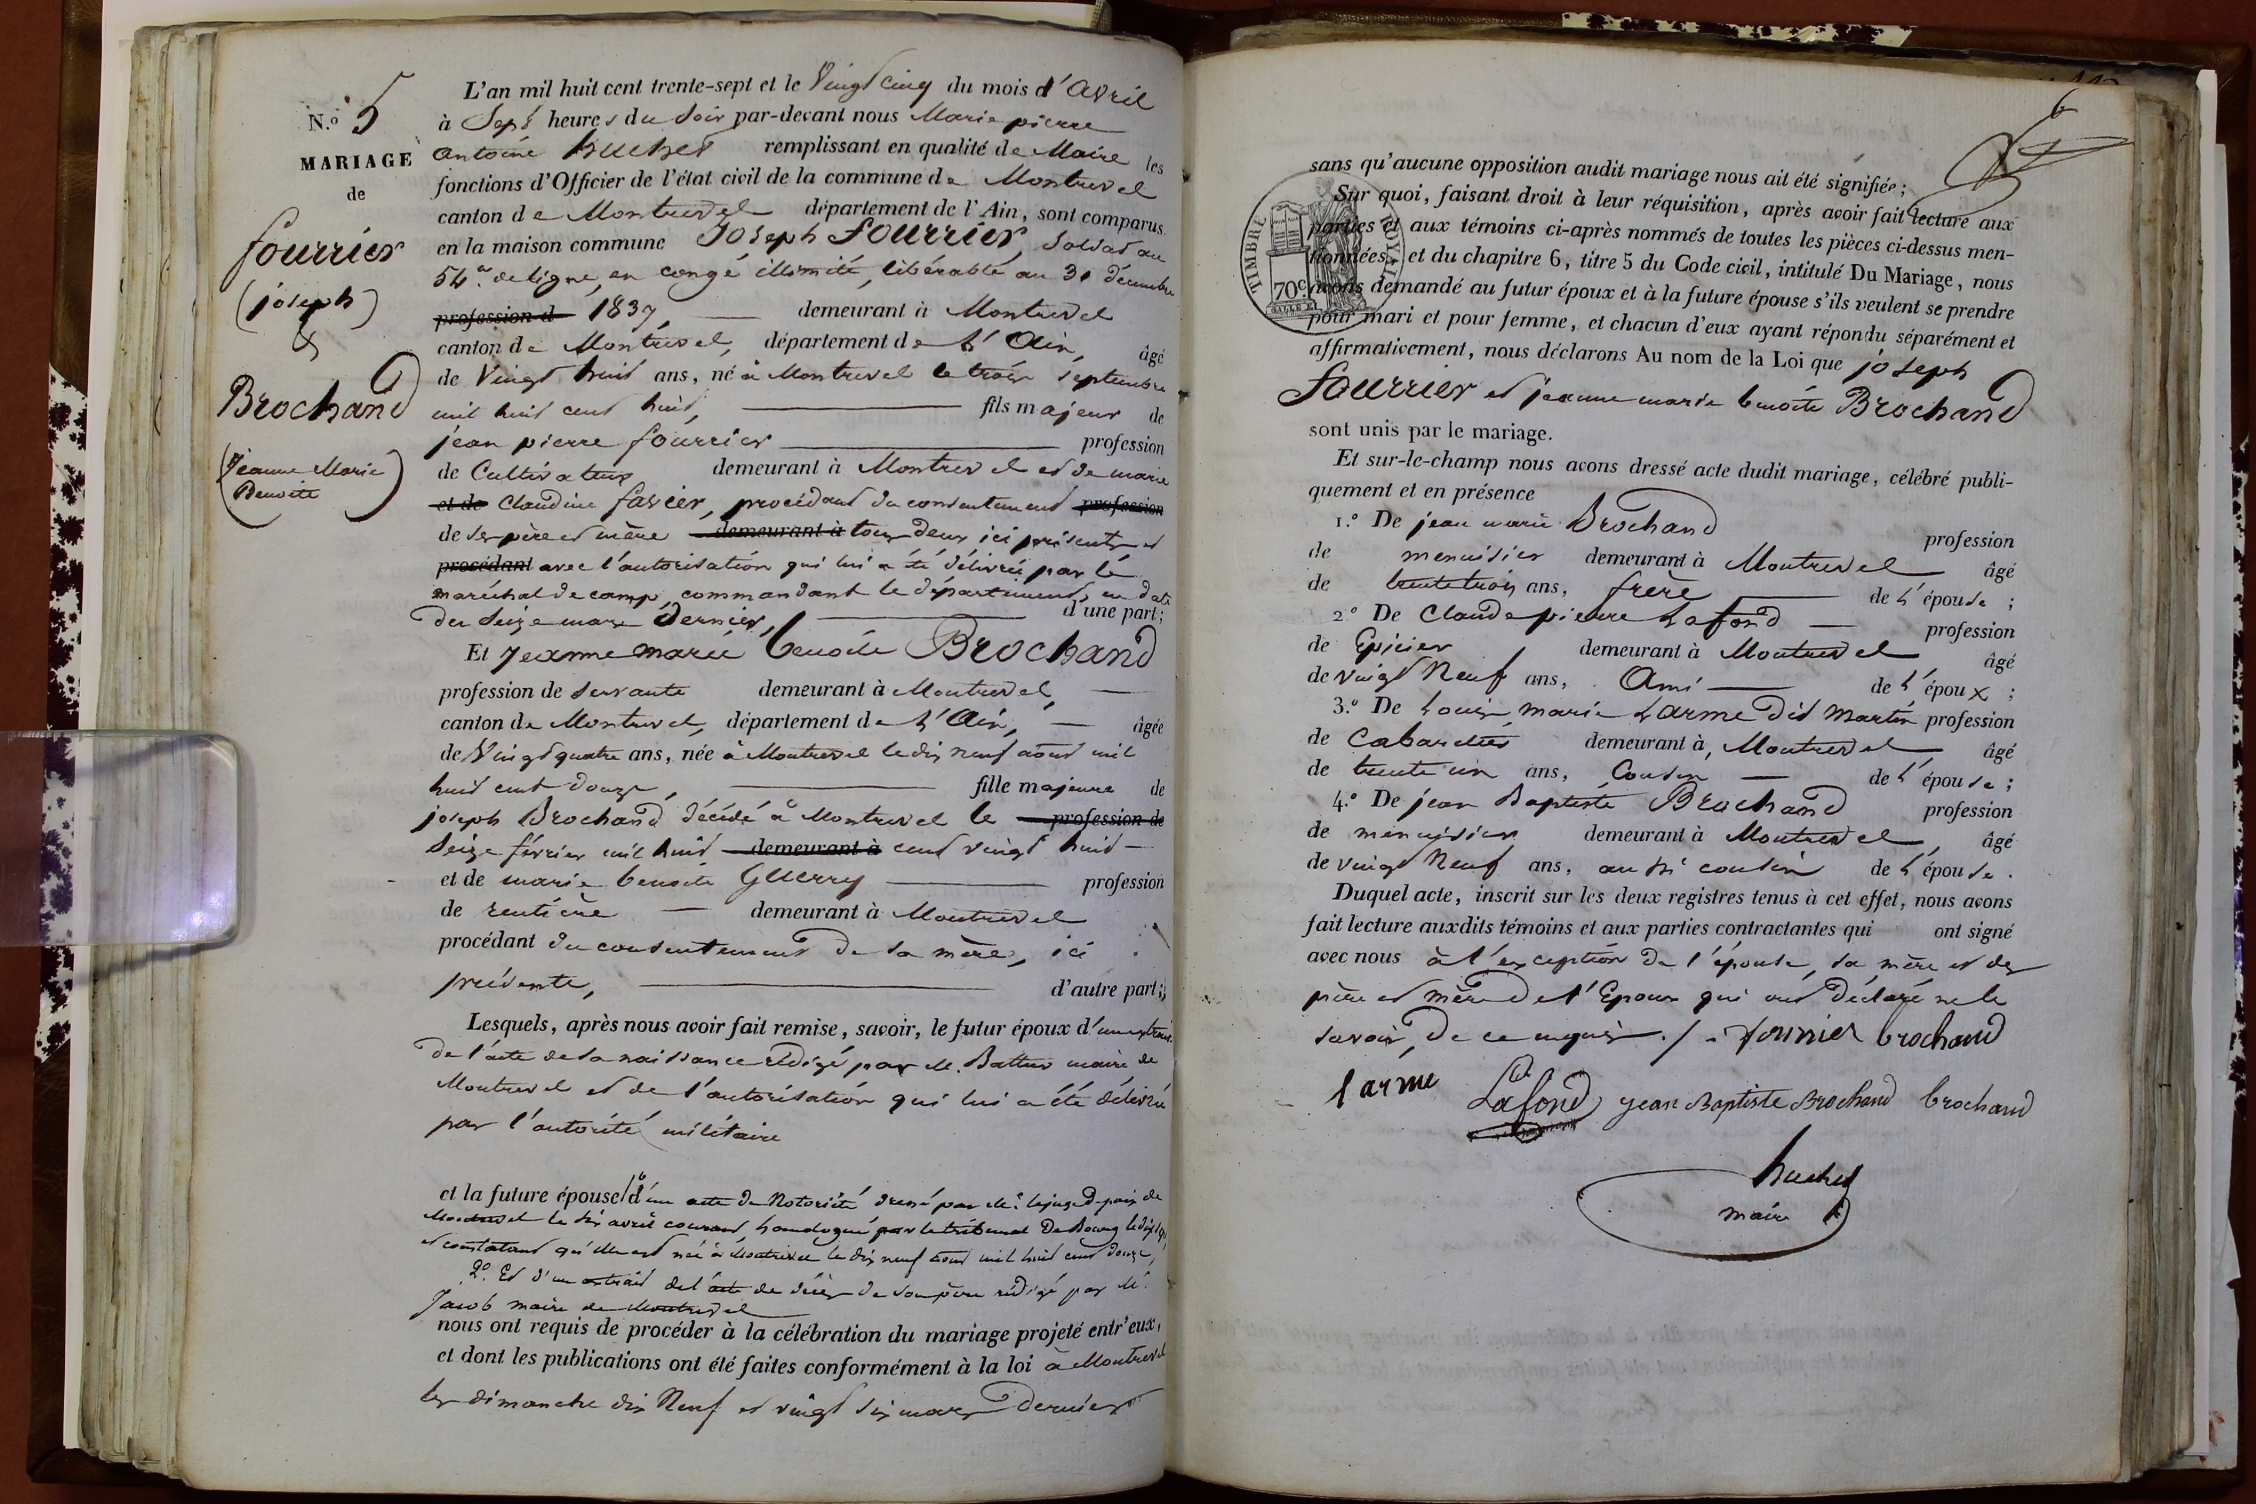 N.º 5
MARIAGE
de
fourrier
(joseph)
&
Brochand
(Jeanne Marie
Benoite)
L'an mil huit cent trente-sept et le Vingt cinq du mois d'Avril
à Sept heures du Soir par-devant nous Marie pierre
antoine huchet remplissant en qualité de Maire les
fonctions d'Officier de l'état civil de la commune de Montrevel
canton de Montrevel département de l'Ain, sont comparus
en la maison commune Joseph fourrier Soldat au
54e. de ligne, en congé illimité, libérable au 31 décembre
profession d 1837 demeurant à Montrevel
canton de Montrevel, département de L'Ain, âgé
de Vingt huit ans, né à Montrevel le trois septembre
mil huit cent huit, fils majeur de
jean pierre fourrier profession
de Cultivateur demeurant à Montrevel et de marie
et de Claudine favier, procédant du consentement profession
de ses père et mère demeurant à tous deux ici présents et
procédant avec l'autorisation qui lui a été délivrée par le
maréchal de camp, commandant le département, en date
du Seize mars dernier, d'une part;
Et Jeanne marie benoite Brochand
profession de servante demeurant à Montrevel,
canton de Montrevel, département de L'Ain, âgée
de Vingt quatre ans, née à Montrevel le dix neuf août mil
huit cent douze, fille majeure de
joseph Brochand décédé à Montrevel le profession de
Seize février mil huit demeurant à cent vingt huit
et de marie benoite Guerry profession
de rentière demeurant à Montrevel
procédant du consentement de sa mère, ici
présente, d'autre part;
Lesquels, après nous avoir fait remise, savoir, le futur époux d'un extrait
de l'acte de sa naissance rédigé par M. Battur maire de
Montrevel et de l'autorisation qui lui a été délivrée
par l'autorité militaire
et la future épouse 1º d'un acte de Notoriété dressé par Mr. le juge de paix de
Montrevel le six avril courant, homologué par le tribunal De Bourg le dix sept,
et constatant qu'elle est née à Montrevel le dix neuf août mil huit cent douze,
2º. Et d'un extrait de l'acte de décès de son père rédigé par Mr.
Jacob maire de Montrevel
nous ont requis de procéder à la célébration du mariage projeté entr'eux,
et dont les publications ont été faites conformément à la loi à Montrevel
les dimanche dix Neuf et vingt six mars derniers
6
sans qu'aucune opposition audit mariage nous ait été signifiée;
Sur quoi, faisant droit à leur réquisition, après avoir fait lecture aux
parties et aux témoins ci-après nommés de toutes les pièces ci-dessus men-
tionnées, et du chapitre 6, titre 5 du Code civil, intitulé Du Mariage, nous
avons demandé au futur époux et à la future épouse s'ils veulent se prendre
pour mari et pour femme, et chacun d'eux ayant répondu séparément et
affirmativement, nous déclarons Au nom de la Loi que joseph
fourrier et jeanne marie benoite Brochand
sont unis par le mariage.
Et sur-le-champ nous avons dressé acte dudit mariage, célébré publi-
quement et en présence
1.º De jean marie Brochand profession
de menuisier demeurant à Montrevel âgé
de trente trois ans, frère de L'épouse ;
2.º De Claude pierre Lafond profession
de Epicier demeurant à Montrevel âgé
de vingt Neuf ans, Ami de L'époux ;
3.º De Louis marie Larme dit Martin profession
de Cabaretier demeurant à Montrevel âgé
de trente un ans, Cousin de L'épouse ;
4.º De jean Baptiste Brochand profession
de menuisier demeurant à Montrevel, âgé
de vingt Neuf ans, aussi cousin de L'épouse.
Duquel acte, inscrit sur les deux registres tenus à cet effet, nous avons
fait lecture auxdits témoins et aux parties contractantes qui ont signé
avec nous à l'exception de l'épouse, sa mère et des
père et mère de l'Epoux qui ont déclaré ne le
savoir, de ce enquis ./. fourrier brochand
larme Lafond jean Baptiste Brochand brochand
huchet
maire
TIMBRE ROYAL
70 c.